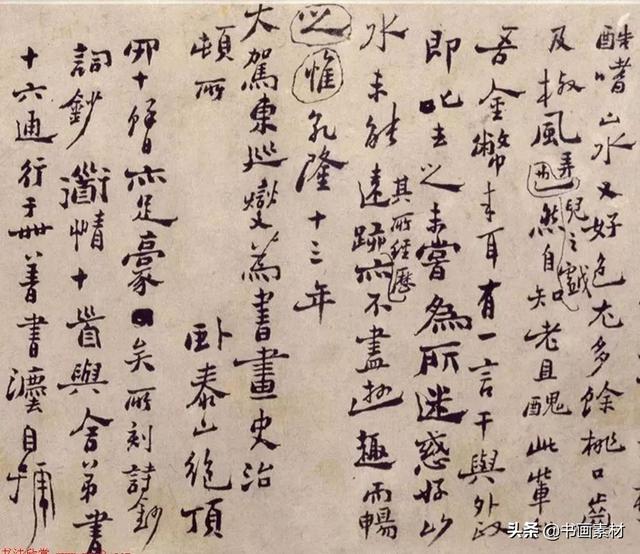 酷嗜山水又好色尤多餘桃口齒
及椒風弄兒之戲然自知老且醜此輩
吾金幣來耳有一言干與外政
即叱去之未嘗為所迷惑好山
水未能遠跡其所經歷亦不盡遊趣而暢
之惟乾隆十三年
大駕東巡燮為書畫史治
頓所卧泰山絕頂
四十餘日亦足豪矣所刻詩鈔
詞鈔道情十首與舍弟書
十六通行于世善書灋自號
头条 @书画素材